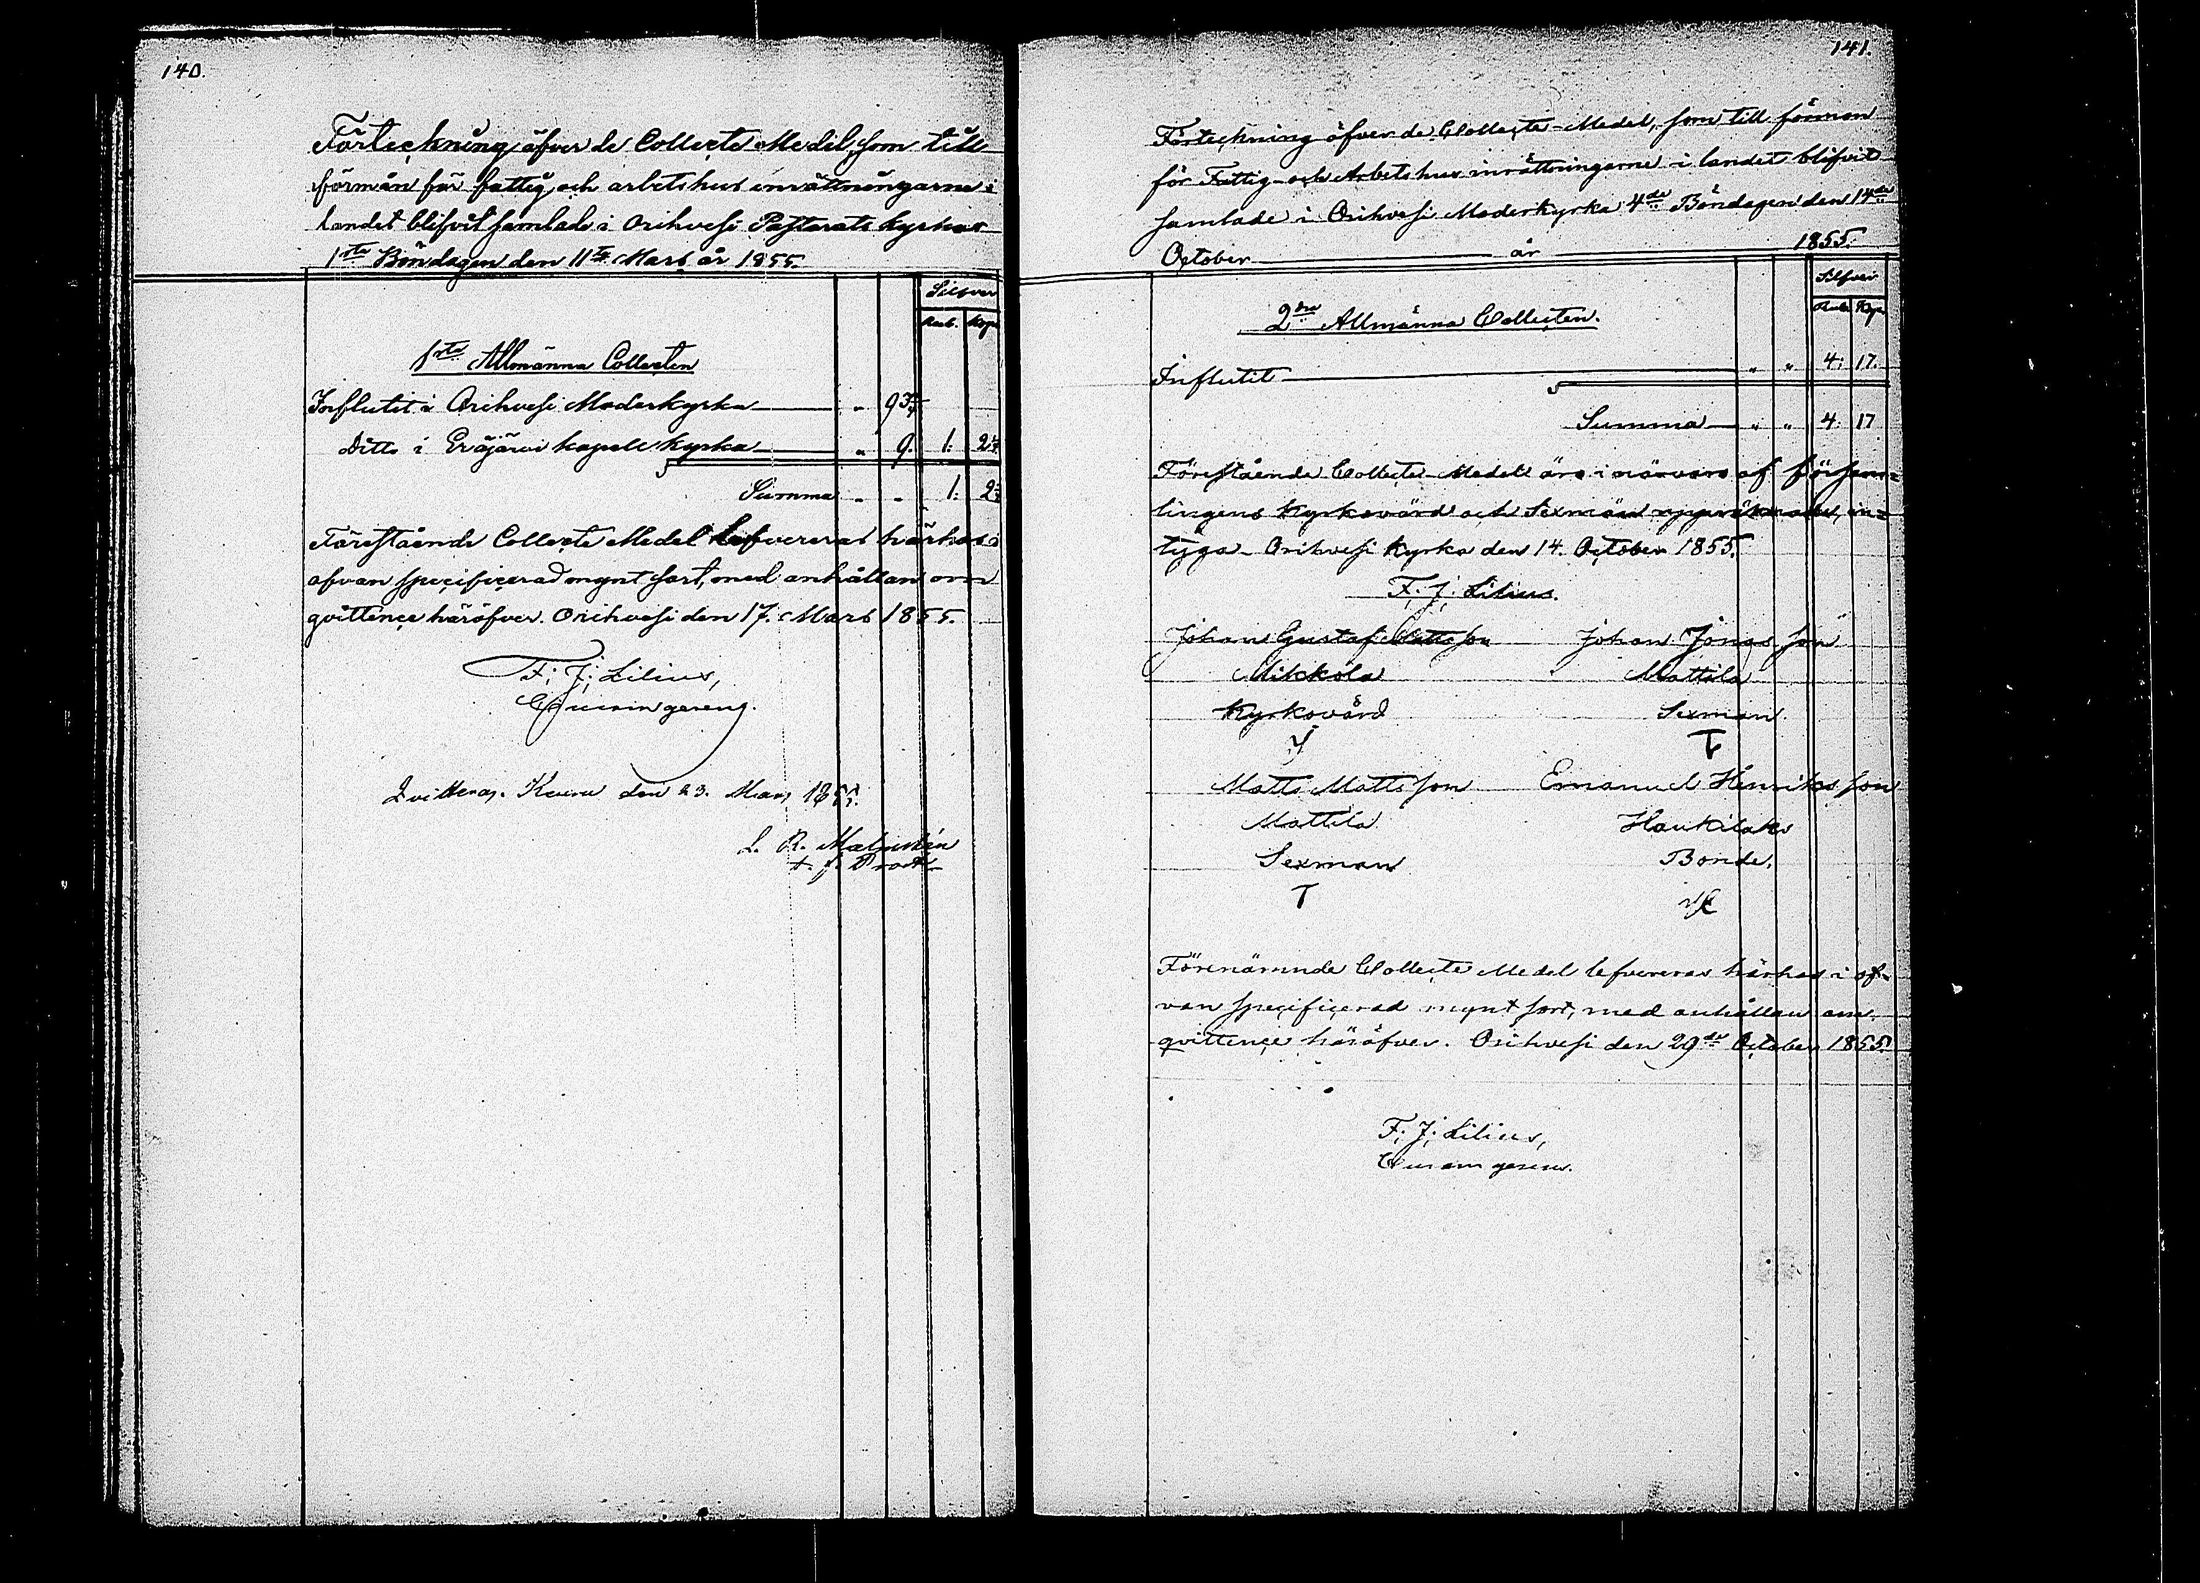 140.
Förteckning öfver de Collecte Medel, som till
förmån för fattig och arbetshus inrättningarne i
landet blifvit samlade i Orihvesi Pastorats Kyrkor
1sta Böndagen den 11te Mars år 1855.
Silfver
Rub. Kop.
1sta Allmänna Collecten
Influtit i Orihvesi Moderkyrka " 93
Ditto i Eräjärvi kapell kyrka " 9. 1: 2
Summa " " 1: 2
Förestående Collecte Medel lefvereras härhos i
ofvan specificerad mynt sort, med anhållan om
qvittence häröfver. Orihvesi den 17. Mars 1855.
F. J. Lilius,
Curam gerens.
Qvitteras. Kuru den 23. Mars 1855.
L. R. Malmstén
t. f. Prost
141.
Förteckning öfver de Collecte-Medel, som till förmon
för Fattig- och Arbetshus inrättningarne i landet blifvit
samlade i Orihvesi Moderkyrka 4de Böndagen den 14de
October år 1855.
Silfver
Rub. Kop.
2dra Allmänna Collecten.
Influtit " " 4: 17.
Summa " " 4: 17
Förestående Collecte-Medel äro i närvaro af Försam-
lingens Kyrkovärd och Sexmän uppräknade, in-
tyga. Orihvesi Kyrka den 14. October 1855.
F. J. Lilius.
Johan Gustaf Mattsson Johan Jonasson
Mikkola Mattila
Kyrkovärd Sexman.
Matts Mattsson Emanuel Henriksson
Mattila Haukilaks
Sexman Bonde.
T
Förenämnde Collecte Medel lefvereras härhos i of-
van specificerad mynt sort, med anhållan om
qvittence häröfver. Orihvesi den 29de October 1855.
F. J. Lilius,
Curam gerens.